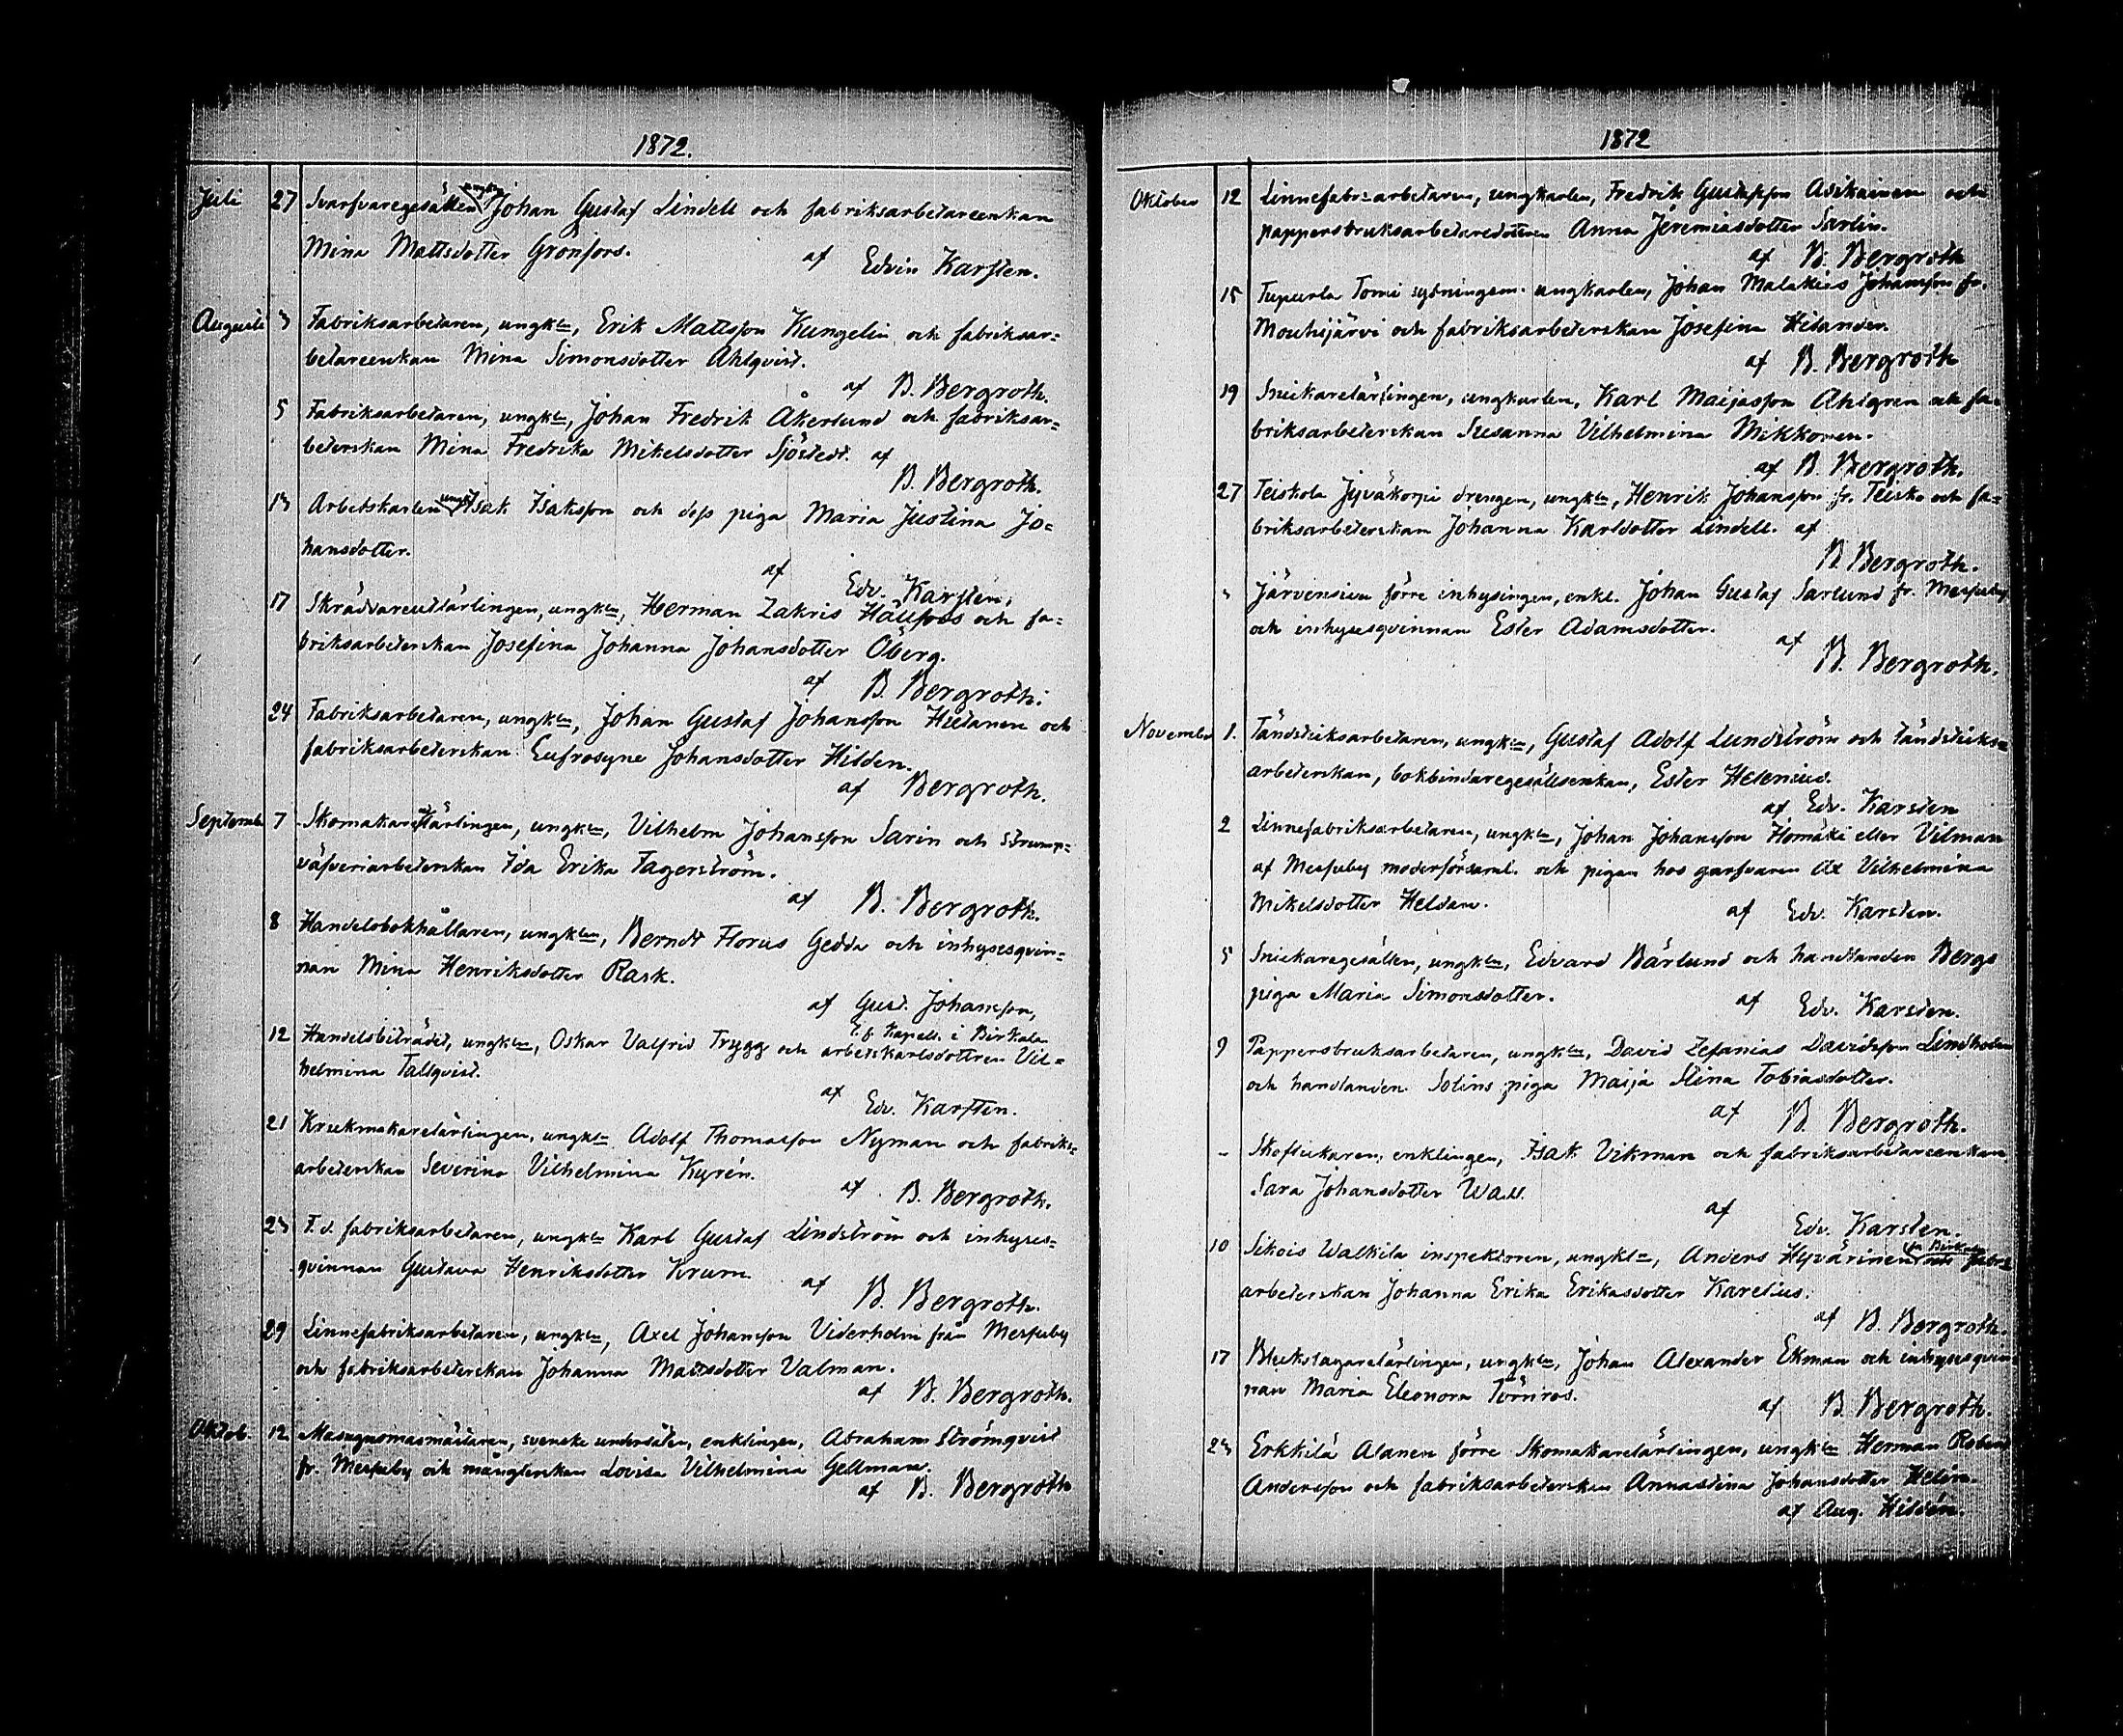 1872.
Juli 27 Svarfvaregesällen ungk. Johan Gustaf Lindell och fabriksarbetareenkan
Mina Mattsdotter Grönfors.
af Edvin Karsten.
Augusti 3 Fabriksarbetaren, ungkln, Erik Mattsson Kungelin och fabriksar=
betareenkan Mina Simonsdotter Ahlqvist.
af B. Bergroth.
5 Fabriksarbetaren, ungkln, Johan Fredrik Åkerlund och fabriksar=
beterskan Mina Fredrika Mikelsdotter Sjöstedt. af
B. Bergroth.
13 Arbetskarlen ungk. Isak Isaksson och dess piga Maria Justina Jo=
hansdotter.
af Edv. Karsten.
17 Skräddareutlärlingen, ungkln, Herman Zakris Hällfors och fa=
briksarbeterskan Josefina Johanna Johansdotter Öberg.
af B. Bergroth.
24 Fabriksarbetaren, ungkln, Johan Gustaf Johansson Hietanen och
fabriksarbeterskan Eufrosyne Johansdotter Hilden.
af Bergroth.
September 7 Skomakarelärlingen, ungkln, Vilhelm Johansson Sarin och strump=
väfveriarbeterskan Ida Erika Fagerström.
af B. Bergroth.
8 Handelsbokhållaren, ungkln, Berndt Florus Gedda och inhysesqvin=
nan Mina Henriksdotter Rask.
af Gust. Johansson,
T. f. Kapell. i Birkala
12 Handelsbiträdet, ungkln, Oskar Valfrid Trygg och arbetskarlsdottren Vil=
helmina Tallqvist.
af Edv. Karsten.
21 Krukmakarelärlingen, ungkln Adolf Thomasson Nyman och fabriks=
arbeterskan Severina Vilhelmina Kyrén.
af B. Bergroth.
23 F.d. fabriksarbetaren, ungkln Karl Gustaf Lindström och inhyses=
qvinnan Gustava Henriksdotter Krum.
af B. Bergroth.
29 Linnefabriksarbetaren, ungkln, Axel Johansson Viderholm från Messuby
och fabriksarbeterskan Johanna Mattsdotter Valman.
af B. Bergroth.
Oktob. 12 Masugnsmasmästaren, svenske undersåten, enklingen, Abraham Strömqvist
fr. Messuby och månglerskan Lovisa Vilhelmina Gellman.
af B. Bergroth
1872
Oktober 12 Linnefabr=arbetaren, ungkarlen, Fredrik Gustafsson Asikainen och
pappersbruksarbetaredottren Anna Jeremiasdotter Sarlin.
af B. Bergroth
15 Tupurla Tomi sytningsm. ungkarlen, Johan Malakias Johansson fr.
Mouhijärvi och fabriksarbeterskan Josefina Hilander.
af B. Bergroth
19 Snickarelärlingen, ungkarlen, Karl Maijasson Ahlgren och fa=
briksarbeterskan Susanna Vilhelmina Mikkonen.
af B. Bergroth.
27 Teiskola Jyväkorpi drengen, ungkln, Henrik Johansson fr. Teisko och fa=
briksarbeterskan Johanna Karlsdotter Lindell. af
B. Bergroth.
" Järvensivu förre inhysingen, enkl. Johan Gustaf Sarlund fr. Messuby
och inhysesqvinnan Ester Adamsdotter.
af B. Bergroth.
November 1. Tändsticksarbetaren, ungkln, Gustaf Adolf Lundström och tändsticks=
arbeterskan, bokbindaregesällsenkan, Ester Helenius.
af Edv. Karsten
2 Linnefabriksarbetaren, ungkln, Johan Johansson Homäki eller Vilman
af Messuby moderförsaml. och pigan hos garfvaren Ax Vilhelmina
Mikelsdotter Heldan.
af Edv. Karsten.
5 Snickaregesällen, ungkln, Edvard Bärlund och handlanden Bergs
piga Maria Simonsdotter.
af Edv. Karsten.
9 Pappersbruksarbetaren, ungkln, David Zefanias Davidsson Lindholm
och handlanden Solins piga Maija Stina Tobiasdotter.
af B. Bergroth.
- Skoflickaren, enklingen, Isak Vikman och fabriksarbetareenkan
Sara Johansdotter Wall.
af Edv. Karsten.
10 Sikois Walkila inspektoren, ungkln, Anders Hyvärinen fr. Birkala och fabr=
arbeterskan Johanna Erika Eriksdotter Karelius.
af B. Bergroth.
17 Bleckslagarelärlingen, ungkln, Johan Alexander Ekman och inhysesqvin=
nan Maria Eleonora Törnros.
af B. Bergroth.
23 Erkkilä Alanen förre Skomakarelärlingen, ungkln Herman Robert
Andersson och fabriksarbeterskan Annastina Johansdotter Helin.
af Aug. Hildén.